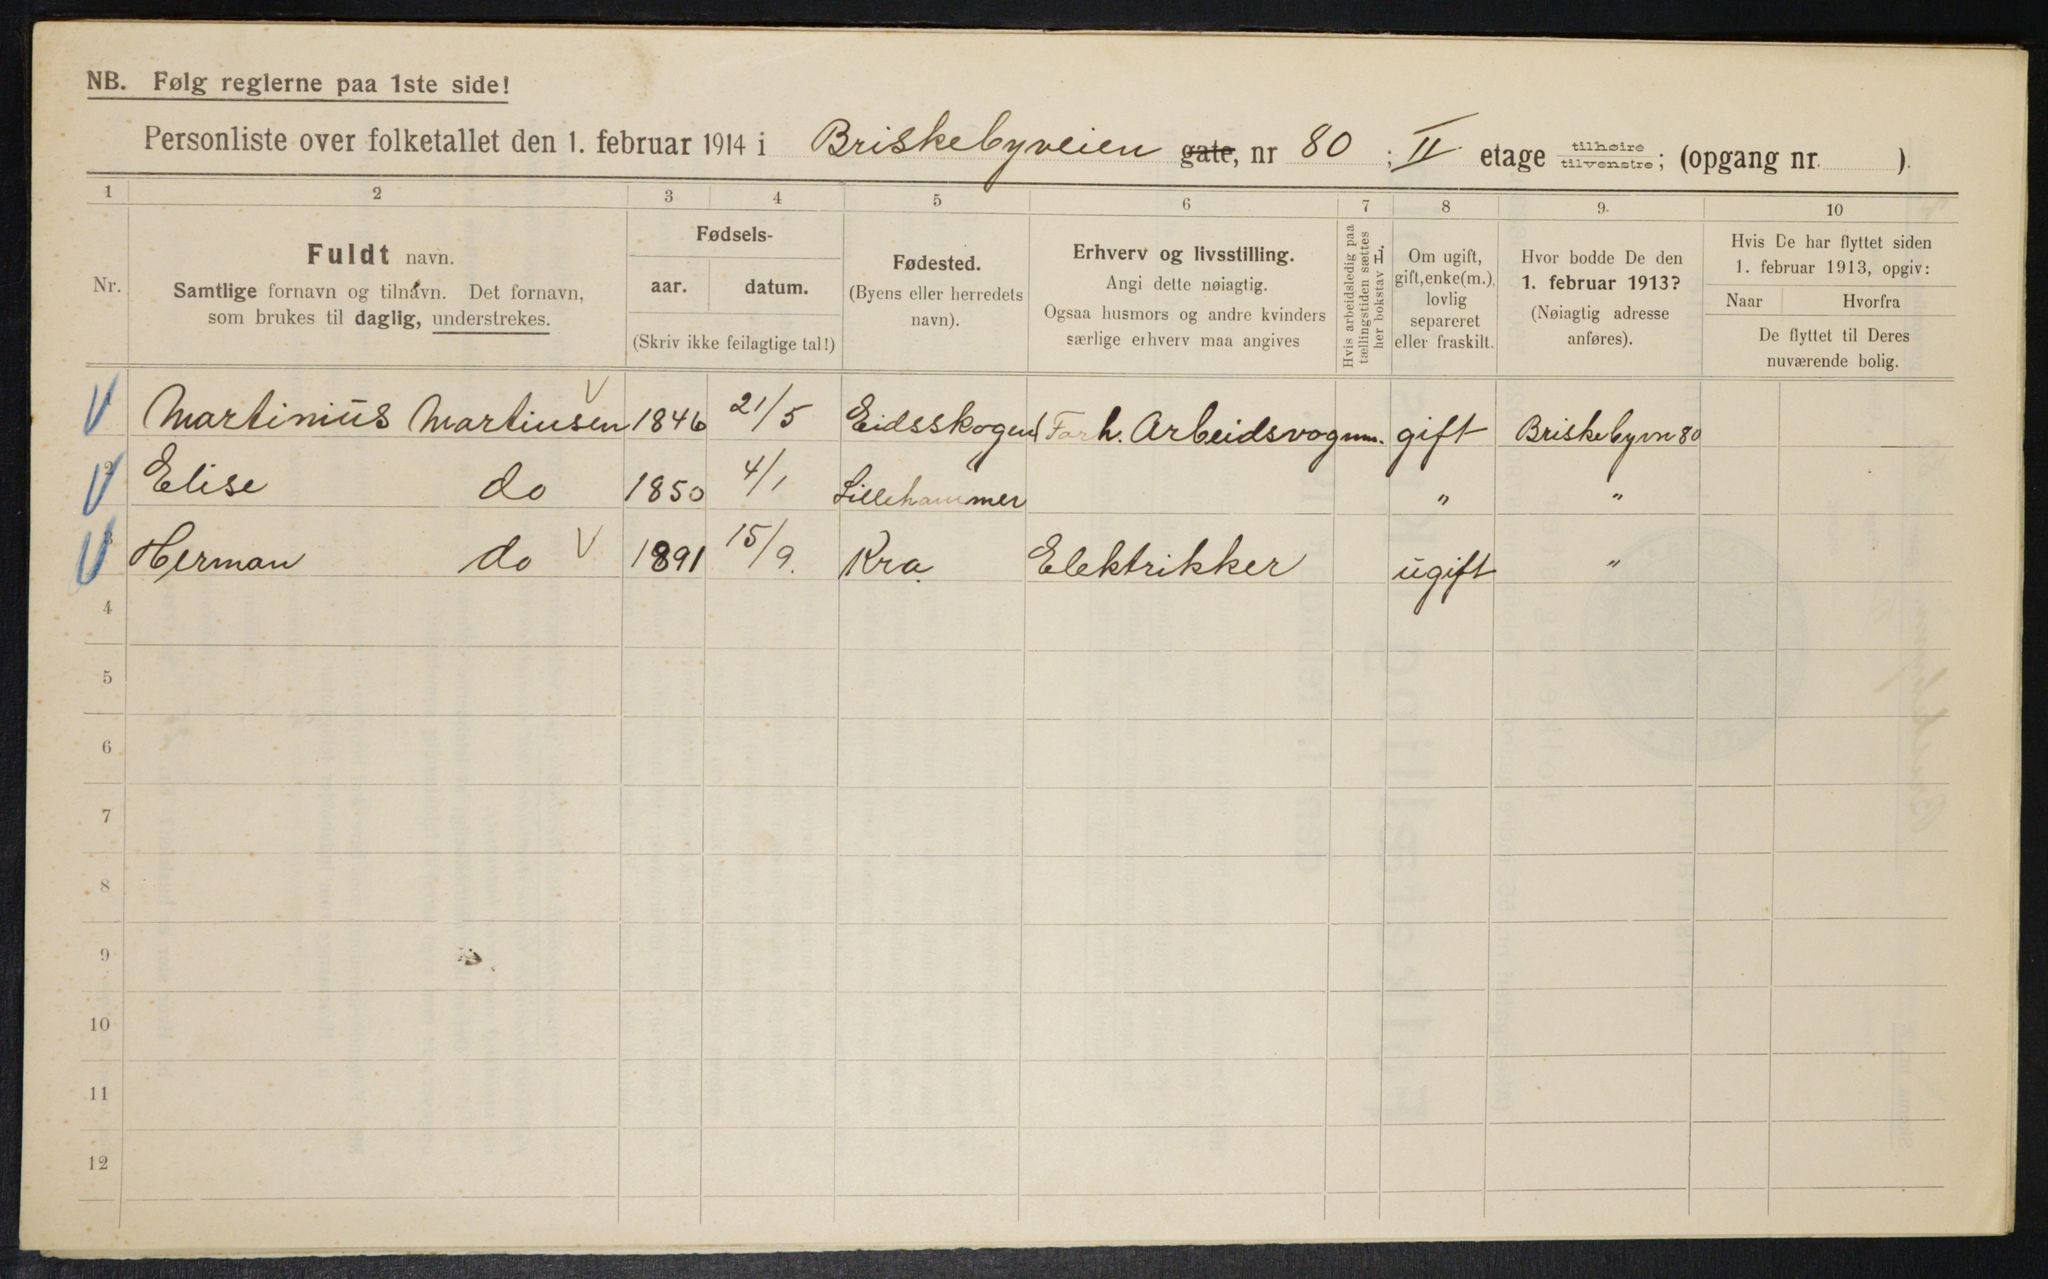 NB. Følg reglerne paa 1ste side!
Personliste over folketallet den 1. februar 1914 i Briskebyveien gate, nr 80 ; II etage tilhøire tilvenstre; (opgang nr. ).
1 2 3 4 5 6 7 8 9. 10
Nr.
Fuldt navn.
Samtlige fornavn og tilnavn. Det fornavn,
som brukes til daglig, understrekes.
Fødsels-
aar. datum.
(Skriv ikke feilagtige tal!)
Fødested.
(Byens eller herredets
navn).
Erhverv og livsstilling.
Angi dette nøiagtig.
Ogsaa husmors og andre kvinders
særlige erhverv maa angives
Hvis arbeidsledig paa
tællingstiden sættes
her bokstav L.
Om ugift,
gift, enke(m.),
lovlig
separeret
eller fraskilt.
Hvor bodde De den
1. februar 1913?
(Nøiagtig adresse
anføres).
Hvis De har flyttet siden
1. februar 1913, opgiv:
Naar Hvorfra
De flyttet til Deres
nuværende bolig.
1 Martinius Martinsen 1846 21/5 Eidsskogen Forh. Arbeidsvognm. gift Briskebyvn 80
2 Elise do 1850 4/1 Lillehammer " "
3 Herman do 1891 15/9. Kra. Elektrikker ugift "
4
5
6
7
8
9
10
11
12